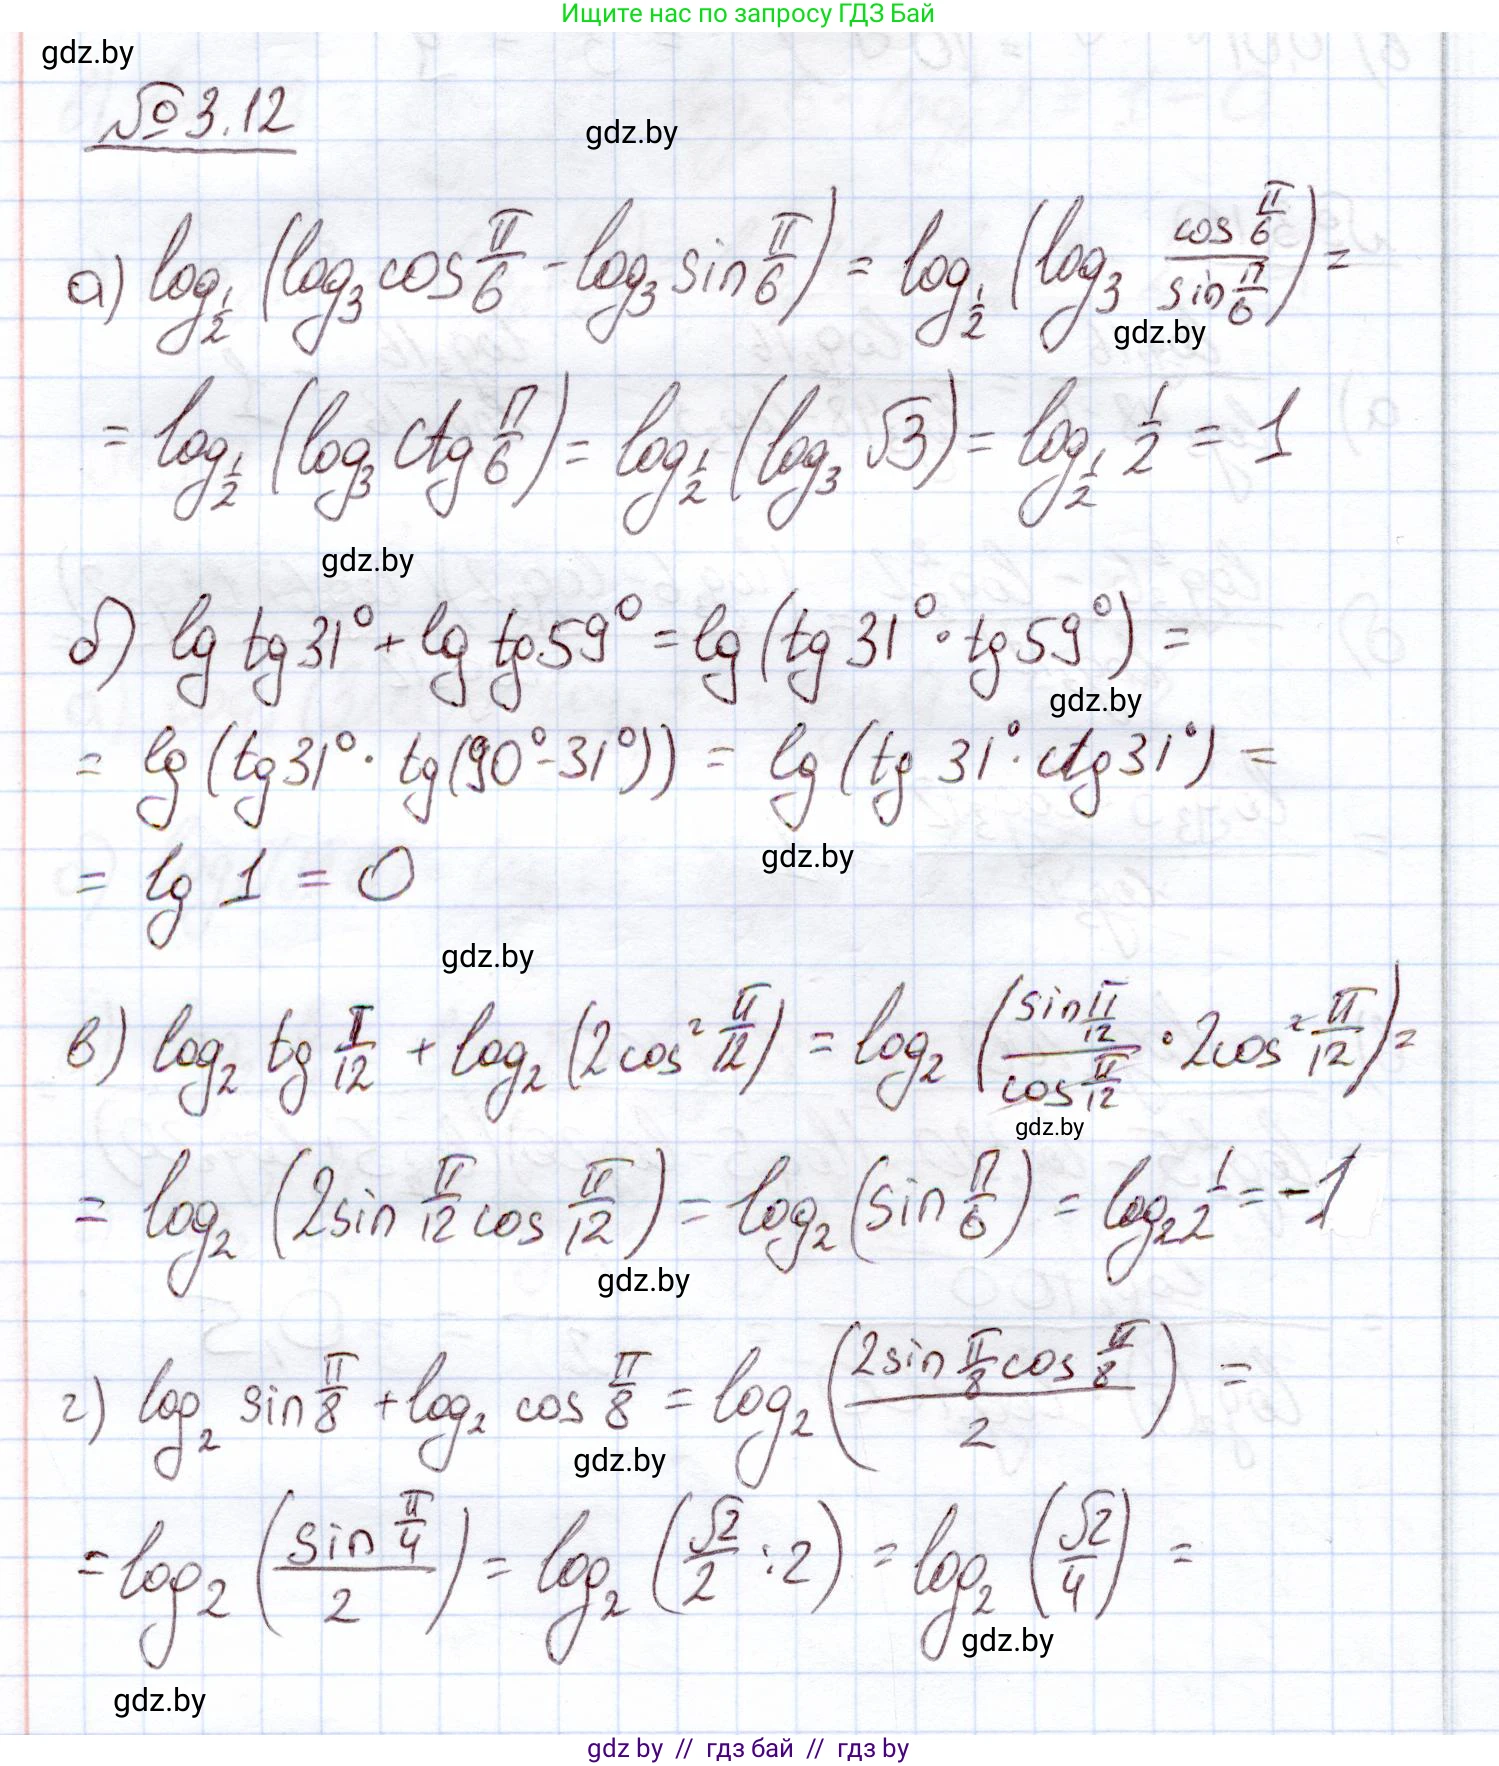 Ищите нас по запросу ГДЗ Бай
gdz.by
№ 3.12
gdz.by
а) log_{1/2} (log_3 cos π/6 - log_3 sin π/6) = log_{1/2} (log_3 (cos π/6)/(sin π/6)) =
gdz.by
= log_{1/2} (log_3 ctg π/6) = log_{1/2} (log_3 √3) = log_{1/2} 1/2 = 1
gdz.by
б) lg tg 31° + lg tg 59° = lg (tg 31° · tg 59°) =
gdz.by
= lg (tg 31° · tg (90° - 31°)) = lg (tg 31° · ctg 31°) =
gdz.by
= lg 1 = 0
gdz.by
в) log_2 tg π/12 + log_2 (2cos² π/12) = log_2 ((sin π/12)/(cos π/12) · 2cos² π/12) =
gdz.by
= log_2 (2sin π/12 cos π/12) = log_2 (sin π/6) = log_2 1/2 = -1
gdz.by
г) log_2 sin π/8 + log_2 cos π/8 = log_2 ((2sin π/8 cos π/8)/2) =
gdz.by
= log_2 ((sin π/4)/2) = log_2 (√2/2 : 2) = log_2 (√2/4) =
gdz.by
gdz.by
gdz by // гдз бай // гдз by